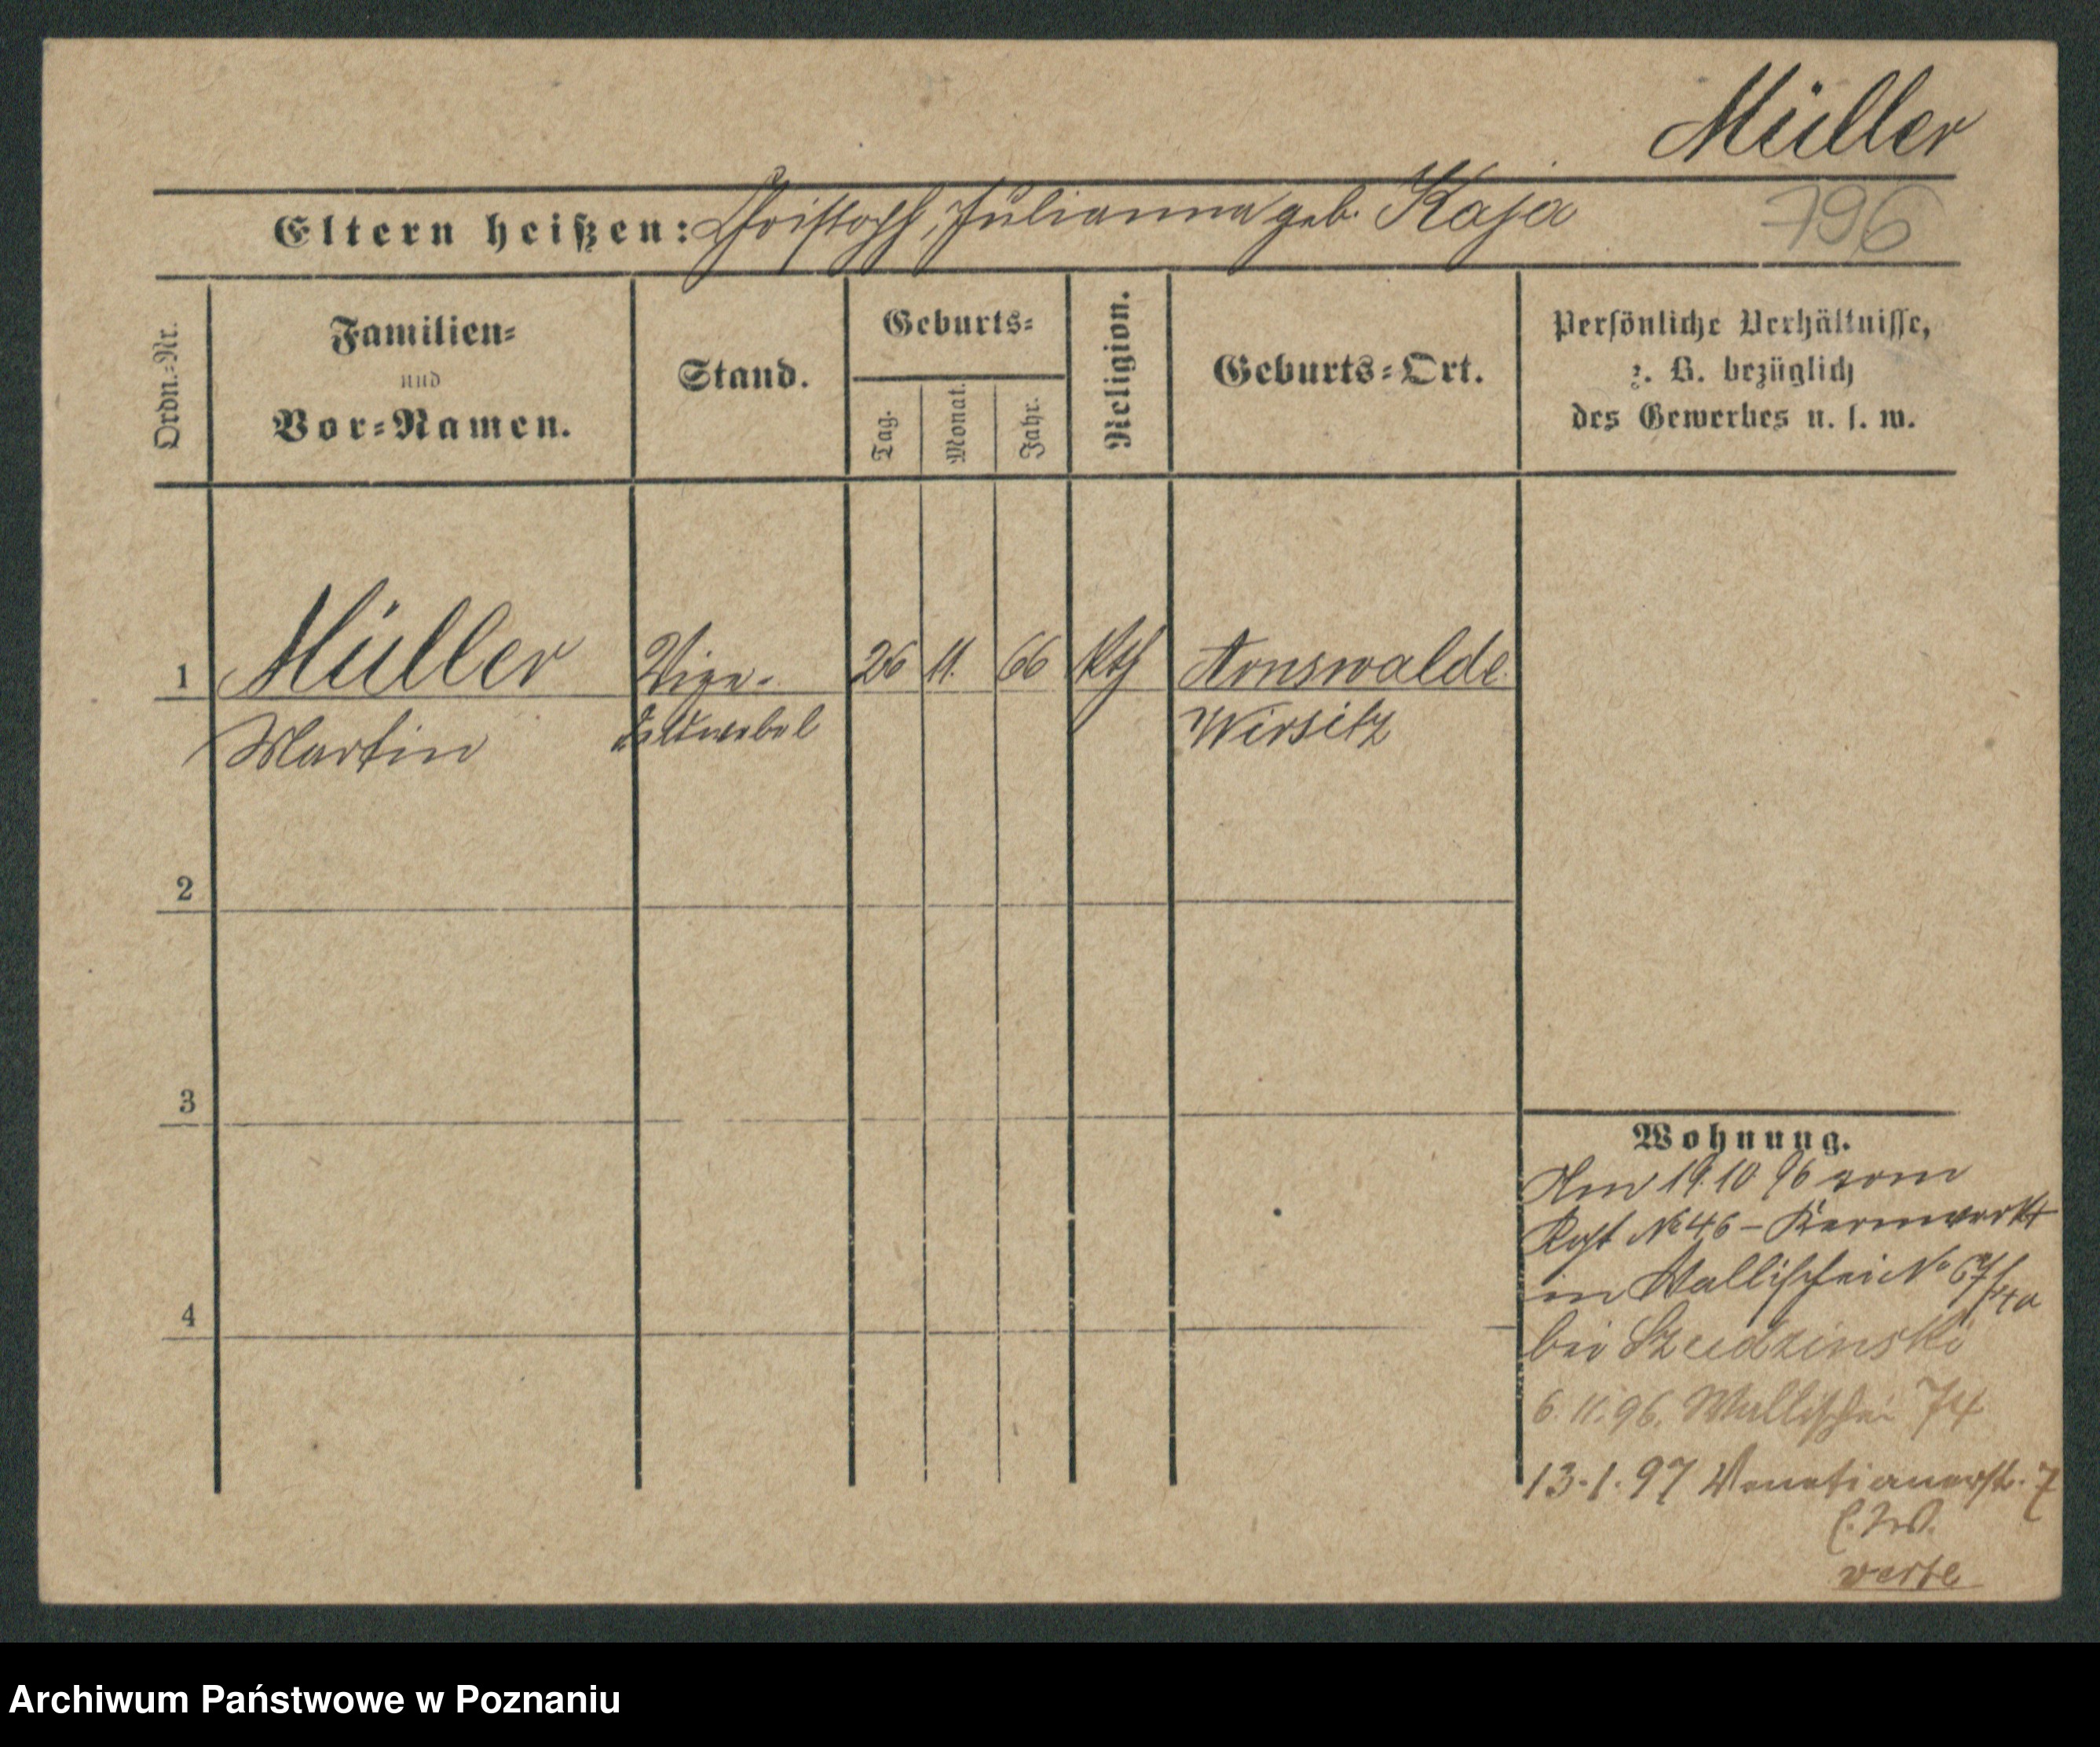 Müller
Eltern heißen: Christoph, Julianna geb. Kaja
796
Ordn.-Nr.
Familien-
und
Vor-Namen.
Stand.
Geburts-
Tag.
Monat.
Jahr.
Religion.
Geburts-Ort.
Persönliche Verhältnisse,
z. B. bezüglich
des Gewerbes u. s. w.
1 Müller Vize- 26 11. 66 kth Arnswalde
Martin Feldwebel Wirsitz
2
3
4
Wohnung.
Am 19.10.96 vom
Rgt № 46 - Kernwerk
in Wallischei № 67/
bei Szudzinski
6.11.96. Wallischei 74
13.1.97 Venetianerstr. 7
verte
Archiwum Państwowe w Poznaniu